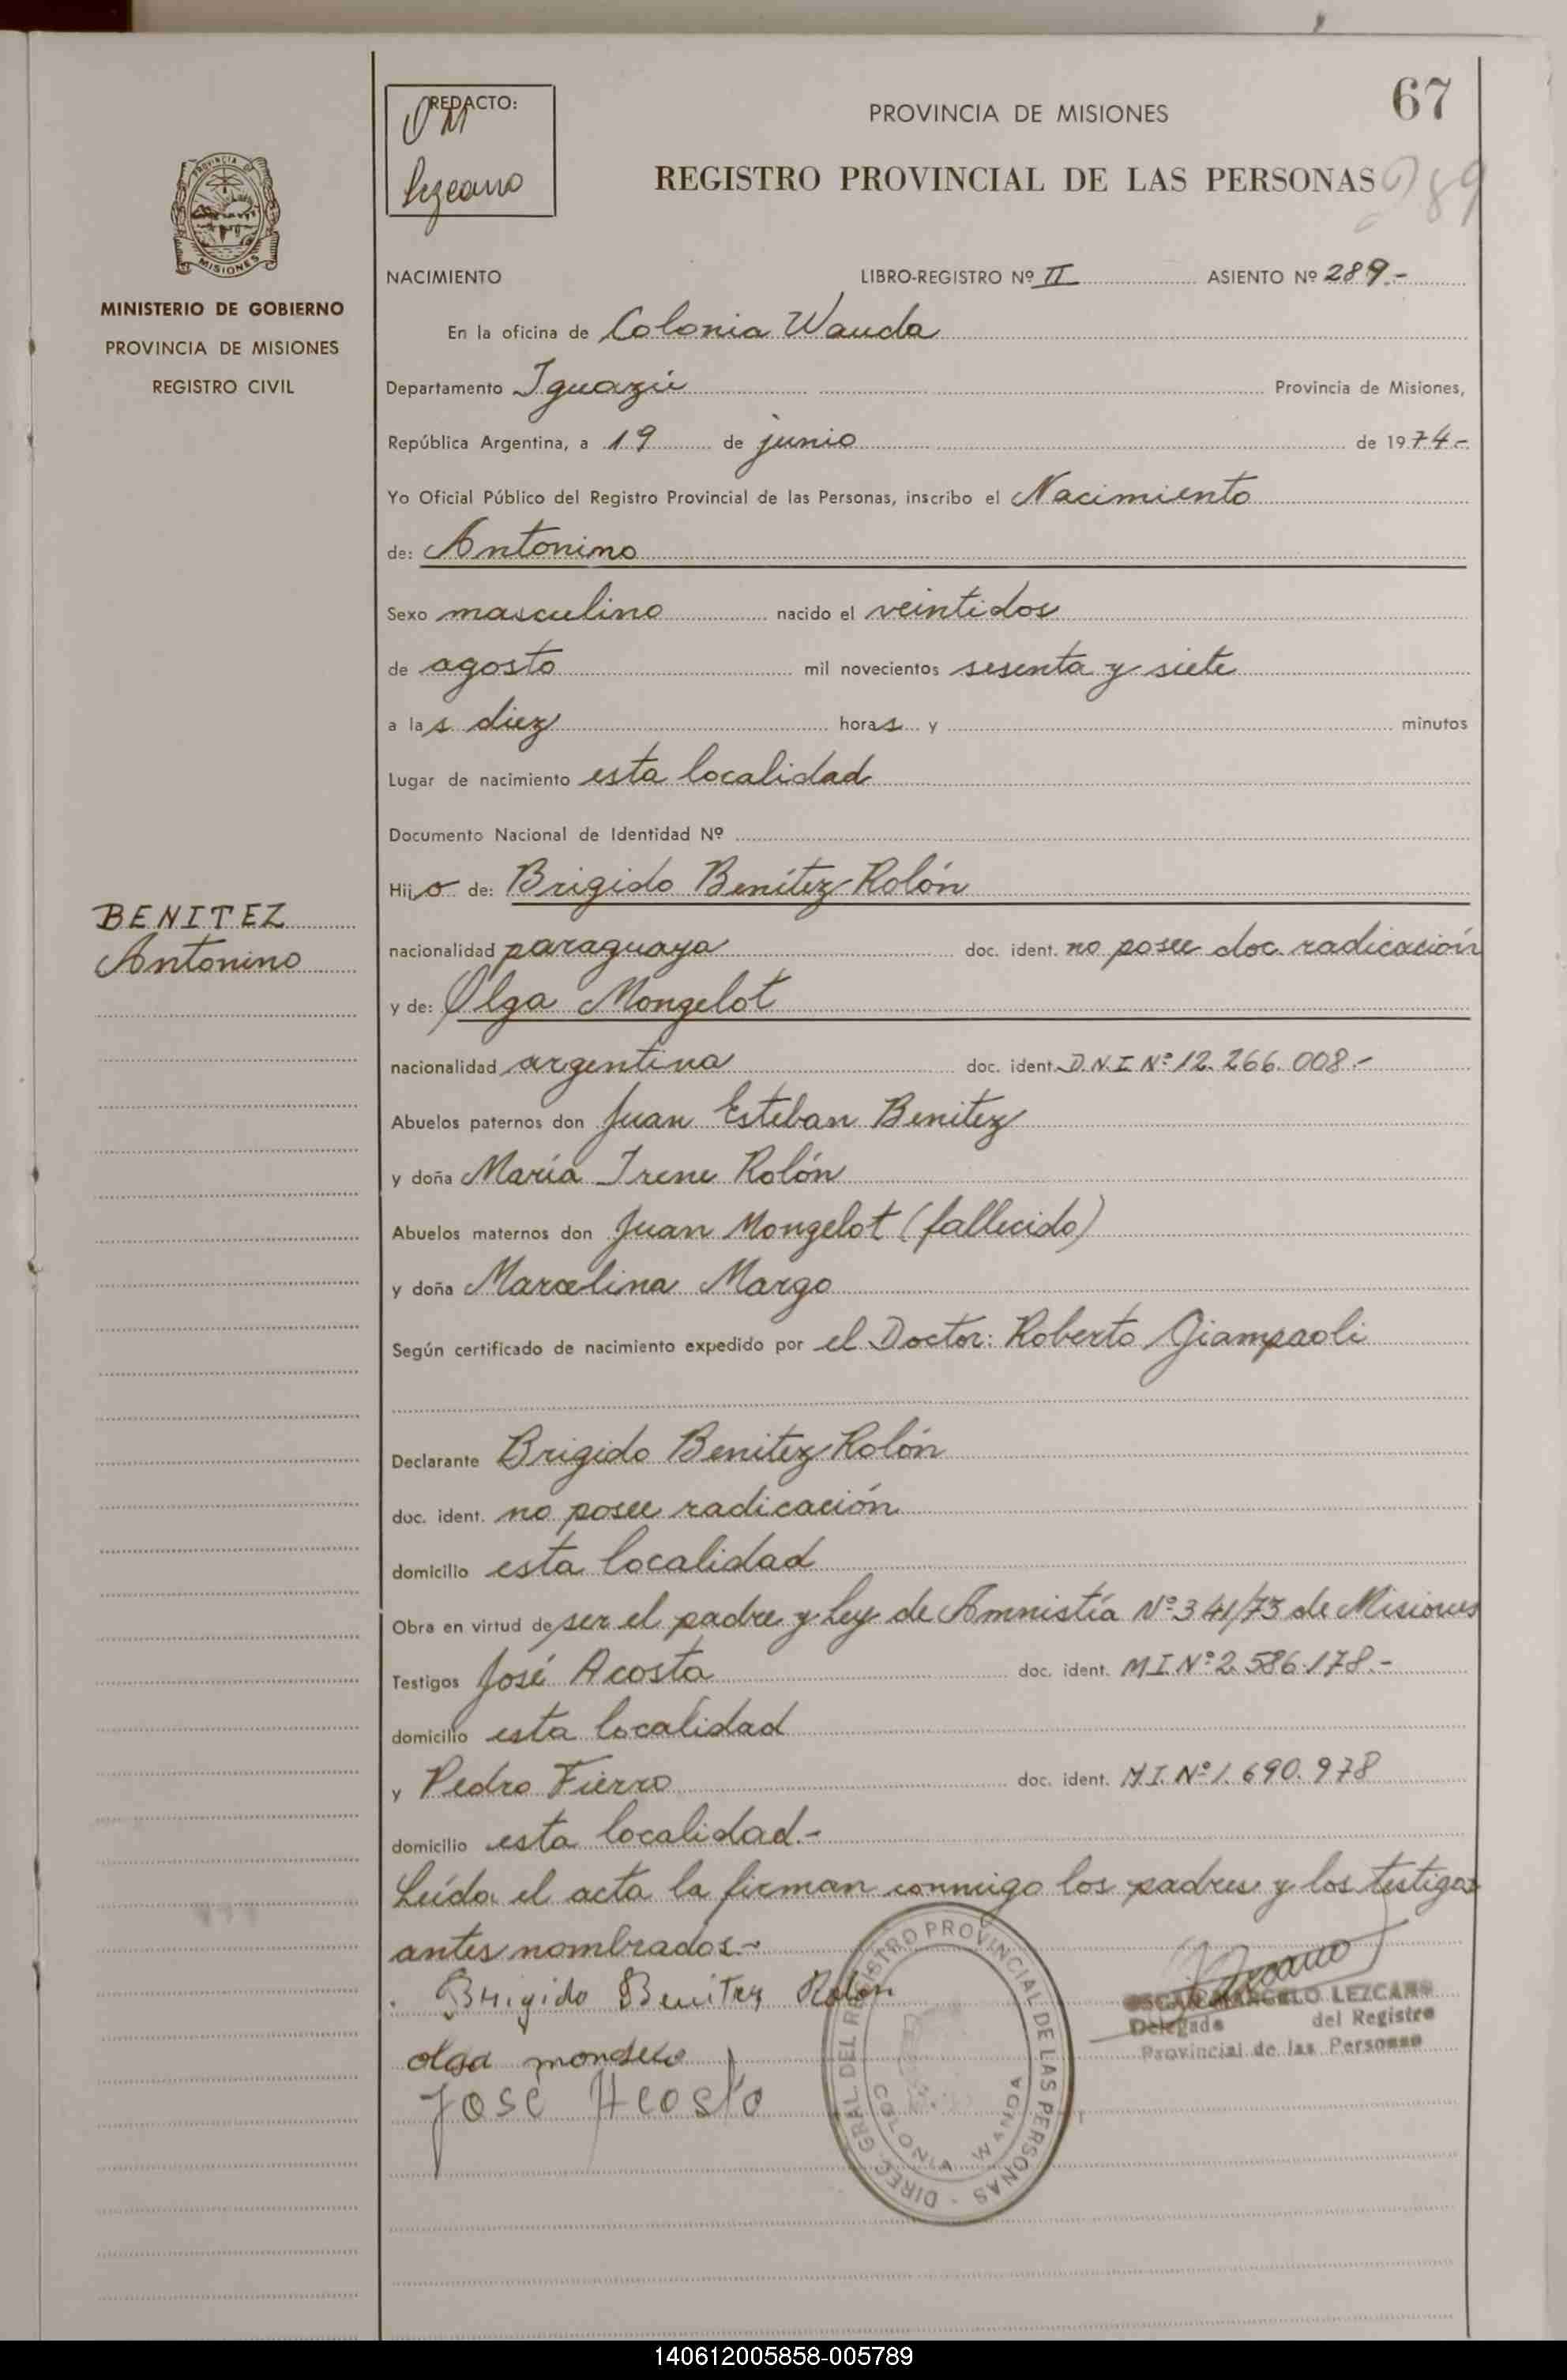 67
REDACTO:
OM
Lezcano
PROVINCIA DE MISIONES
REGISTRO PROVINCIAL DE LAS PERSONAS
289
PROVINCIA DE
MISIONES
MINISTERIO DE GOBIERNO
PROVINCIA DE MISIONES
REGISTRO CIVIL
NACIMIENTO LIBRO-REGISTRO Nº II ASIENTO Nº 289.-
En la oficina de Colonia Wanda
Departamento Iguazú Provincia de Misiones,
República Argentina, a 19 de junio de 1974.-
Yo Oficial Público del Registro Provincial de las Personas, inscribo el Nacimiento
de: Antonino
Sexo masculino nacido el veintidos
de agosto mil novecientos sesenta y siete
a las diez horas y minutos
Lugar de nacimiento esta localidad
Documento Nacional de Identidad Nº
Hijo de: Brigido Benítez Rolón
BENITEZ
Antonino
nacionalidad paraguaya doc. ident. no posee doc. radicación
y de: Olga Mongelot
nacionalidad argentina doc. ident. D.N.I. Nº 12.266.008.-
Abuelos paternos don Juan Esteban Benitez
y doña María Irene Rolón
Abuelos maternos don Juan Mongelot (fallecido)
y doña Marcelina Margo
Según certificado de nacimiento expedido por el Doctor: Roberto Giampaoli
Declarante Brigido Benitez Rolón
doc. ident. no posee radicación
domicilio esta localidad
Obra en virtud de ser el padre y Ley de Amnistía Nº 341/73 de Misiones
Testigos José Acosta doc. ident. M I. Nº 2.586.178.-
domicilio esta localidad
y Pedro Fierro doc. ident. M.I. Nº 1.690.978
domicilio esta localidad.-
Leída el acta la firman conmigo los padres y los testigos
antes nombrados.-
Brigido Benitez Rolon
olga
José Acosta
DIREC. GRAL DEL REGISTRO PROVINCIAL DE LAS PERSONAS -
COLONIA WANDA
OSCAR MARCELO LEZCANO
Delegado del Registro
Provincial de las Personas
140612005858-005789